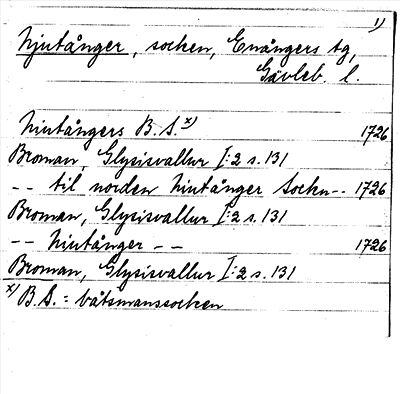 1)
Njutånger, socken, Enångers tg,
Gävleb. l.
Niutångers B.S.x) 1726
Broman, Glysisvallur I:2 s. 131
-- til norden Niutånger Sockn-- 1726
Broman, Glysisvallur I:2 s. 131
-- Niutånger -- 1726
Broman, Glysisvallur I:2 s. 131
x) B.S. = båtsmanssocken